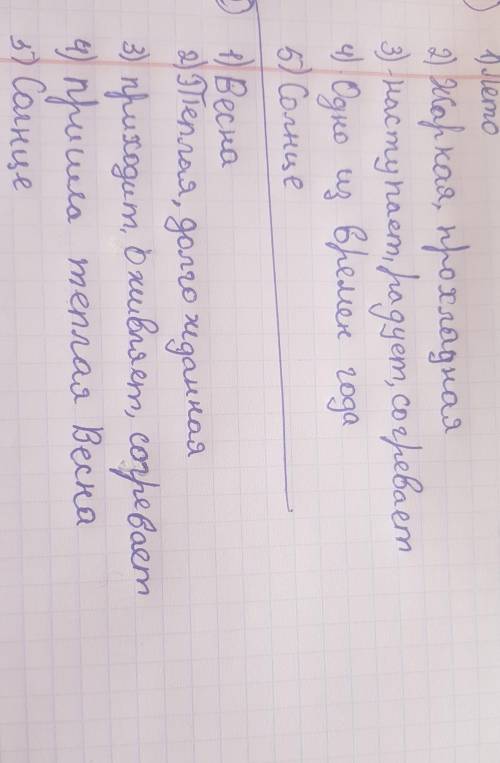 1) Лето
2) Жаркая, прохладная
3) наступает, радует, согревает
4) Одно из времен года
5) Солнце
1) Весна
2) Теплая, долгожданная
3) приходит, оживляет, согревает
4) пришла теплая Весна
5) Солнце